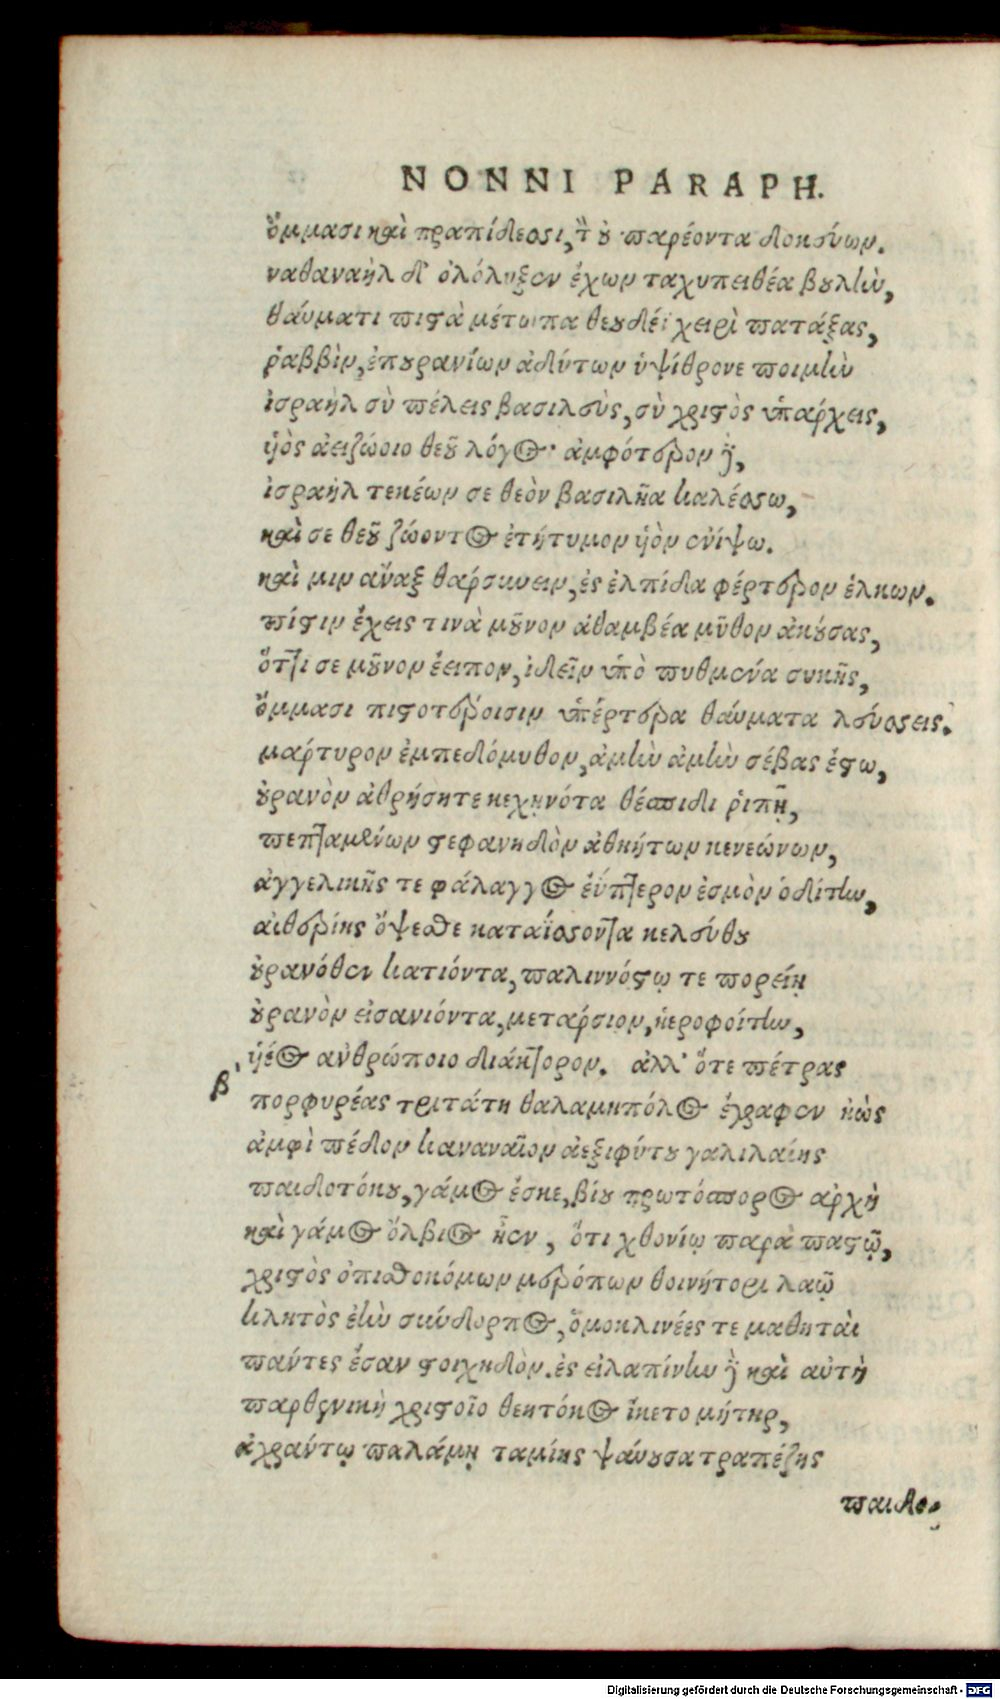 NONNI PARAPH.
ὄμμασι καὶ πραπίδεσσι, τὸ οὐ παρέοντα δοκεύων.
ναθαναὴλ δ' ὀλόλυξεν ἔχων ταχυπειθέα βουλὴν,
θαύματι πιστὰ μέτωπα θεουδέϊ χειρὶ πατάξας,
ῥαββὶν, ἐπουρανίων ἀδύτων ὑψίθρονε ποιμὴν
ἰσραὴλ σὺ πέλεις βασιλεὺς, σὺ χριστὸς ὑπάρχεις,
υἱὸς ἀειζώοιο θεοῦ λόγος· ἀμφότερον δὲ,
ἰσραὴλ τεκέων σε θεὸν βασιλῆα καλέσσω,
καὶ σε θεοῦ ζώοντος ἐτήτυμον υἱὸν ἐνίψω.
καὶ μιν ἄναξ θάρσυνειν, ἐς ἐλπίδα φέρτερον ἕλκων.
πίστιν ἔχεις τινὰ μοῦνον ἀθαμβέα μῦθον ἀκούσας,
ὅττι σε μοῦνον ἔειπον, ἰδεῖν ὑπὸ πυθμένα συκῆς,
ὄμμασι πιστοτέροισιν ὑπέρτερα θαύματα λεύσσεις.
μάρτυρον ἐμπεδόμυθον, ἀμὴν ἀμὴν σέβας ἔστω,
οὐρανὸν ἀθρήσητε κεχηνότα θέσπιδι ῥιπῇ,
πεπταμένων στεφανηδὸν ἀθηήτων κενεώνων,
ἀγγελικῆς τε φάλαγγος ἐΰπτερον ἑσμὸν ὁδίτην,
αἰθερίης ὄψεσθε καταΐσσοντα κελεύθου
οὐρανόθεν κατιόντα, παλιννόστῳ τε πορείῃ
οὐρανὸν εἰσανιόντα, μετάρσιον, ἠεροφοίτην,
υἱέος ἀνθρώποιο διάκτορον. ἀλλ' ὅτε πέτρας
β'
πορφυρέας τριτάτη θαλαμηπόλος ἔγραφεν ἠὼς
ἀμφὶ πέδον καναναῖον ἀεξιφύτου γαλιλαίης
παιδοτόκου, γάμος ἔσκε, βίου πρωτόσπορος ἀρχὴ
καὶ γάμος ὄλβιος ἦεν, ὅτι χθονίῳ παρὰ παστῷ,
χριστὸς ὀπισθοκόμων μερόπων θοινήτορι λαῷ
κλητὸς ἐὴν σύνδορπος, ὁμοκλινέες τε μαθηταὶ
πάντες ἔσαν στοιχηδὸν. ἐς εἰλαπίνην δὲ καὶ αὐτὴ
παρθενικὴ χριστοῖο θεητόκος ἵκετο μήτηρ,
ἀχράντῳ παλάμῃ ταμίης ψαύουσα τραπέζης
παιδο-
Digitalisierung gefördert durch die Deutsche Forschungsgemeinschaft - DFG